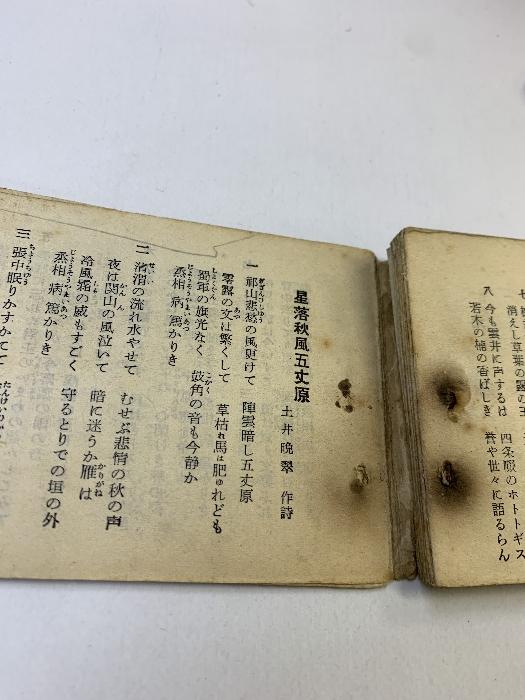 消えし草葉の露の玉
八 今も雲井に声するは 四条畷のホトトギス
若木の楠の香ばしき 誉や世々に語るらん
星落秋風五丈原
土井晩翠 作詩
一 祁山悲愁の風更けて 陣雲暗し五丈原
零露の文は繁くして 草枯れ馬は肥ゆれども
蜀軍の旗光なく 鼓角の音も今静か
丞相 病 篤かりき
二 清渭の流れ水やせて むせぶ悲情の秋の声
夜は関山の風泣いて 暗に迷うか雁は
冷風霜の威もすごく 守るとりでの垣の外
丞相 病 篤かりき
三 帳中眠りかすかにて